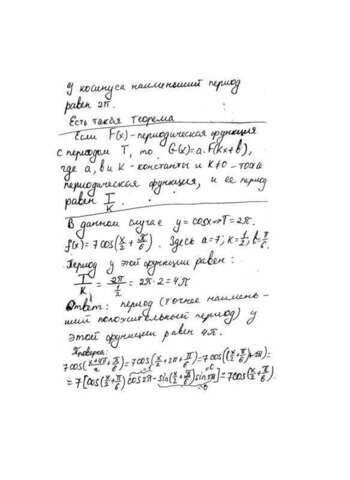 У косинуса наименьший период
равен 2π.
Есть такая Теорема
Если F(x) - периодическая функция
с периодом T, то G(x)=a·F(kx+b),
где a, b и k - константы и k≠0 - тоже
периодическая функция, и ее период
равен T/k.
В данном случае y=cosx ⇒ T=2π.
f(x)=7cos(x/2+π/6). Здесь a=7, k=1/2, b=π/6.
Период у этой функции равен:
T/k = 2π/(1/2) = 2π·2=4π
Ответ: период (точнее наимень-
ший положительный период) у
этой функции равен 4π.
Проверка:
7cos((x+4π)/2+π/6)=7cos(x/2+2π+π/6)=7cos((x/2+π/6)+2π)=
=7[cos(x/2+π/6)cos2π-sin(x/2+π/6)sin2π]=7cos(x/2+π/6)